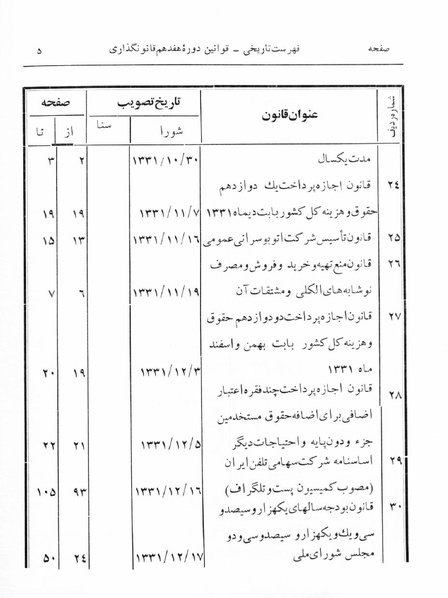 صفحه فهرست تاریخی ـ قوانین دورهٔ هفدهم قانونگذاری ۵
شماره ردیف عنوان قانون تاریخ تصویب صفحه
شورا سنا از تا
مدت یکسال ۱۳۳۱/۱۰/۳۰ ۲ ۳
۲۴ قانون اجازه پرداخت یک دوازدهم
حقوق و هزینه کل کشور بابت دیماه ۱۳۳۱ ۱۳۳۱/۱۱/۷ ۱۹ ۱۹
۲۵ قانون تأسیس شرکت اتوبوسرانی عمومی ۱۳۳۱/۱۱/۱۶ ۱۳ ۱۵
۲۶ قانون منع تهیه و خرید و فروش و مصرف
نوشابه های الکلی و مشتقات آن ۱۳۳۱/۱۱/۱۹ ۶ ۷
۲۷ قانون اجازه پرداخت دو دوازدهم حقوق
و هزینه کل کشور بابت بهمن و اسفند
ماه ۱۳۳۱ ۱۳۳۱/۱۲/۳ ۱۹ ۲۰
۲۸ قانون اجازه پرداخت چند فقره اعتبار
اضافی برای اضافه حقوق مستخدمین
جزء و دون پایه و احتیاجات دیگر ۱۳۳۱/۱۲/۵ ۲۱ ۲۲
۲۹ اساسنامه شرکت سهامی تلفن ایران
(مصوب کمیسیون پست و تلگراف) ۱۳۳۱/۱۲/۱۶ ۹۳ ۱۰۵
۳۰ قانون بودجه سالهای یکهزار و سیصد و
سی و یک و یکهزار و سیصد و سی و دو
مجلس شورای ملی ۱۳۳۱/۱۲/۱۷ ۲۴ ۵۰